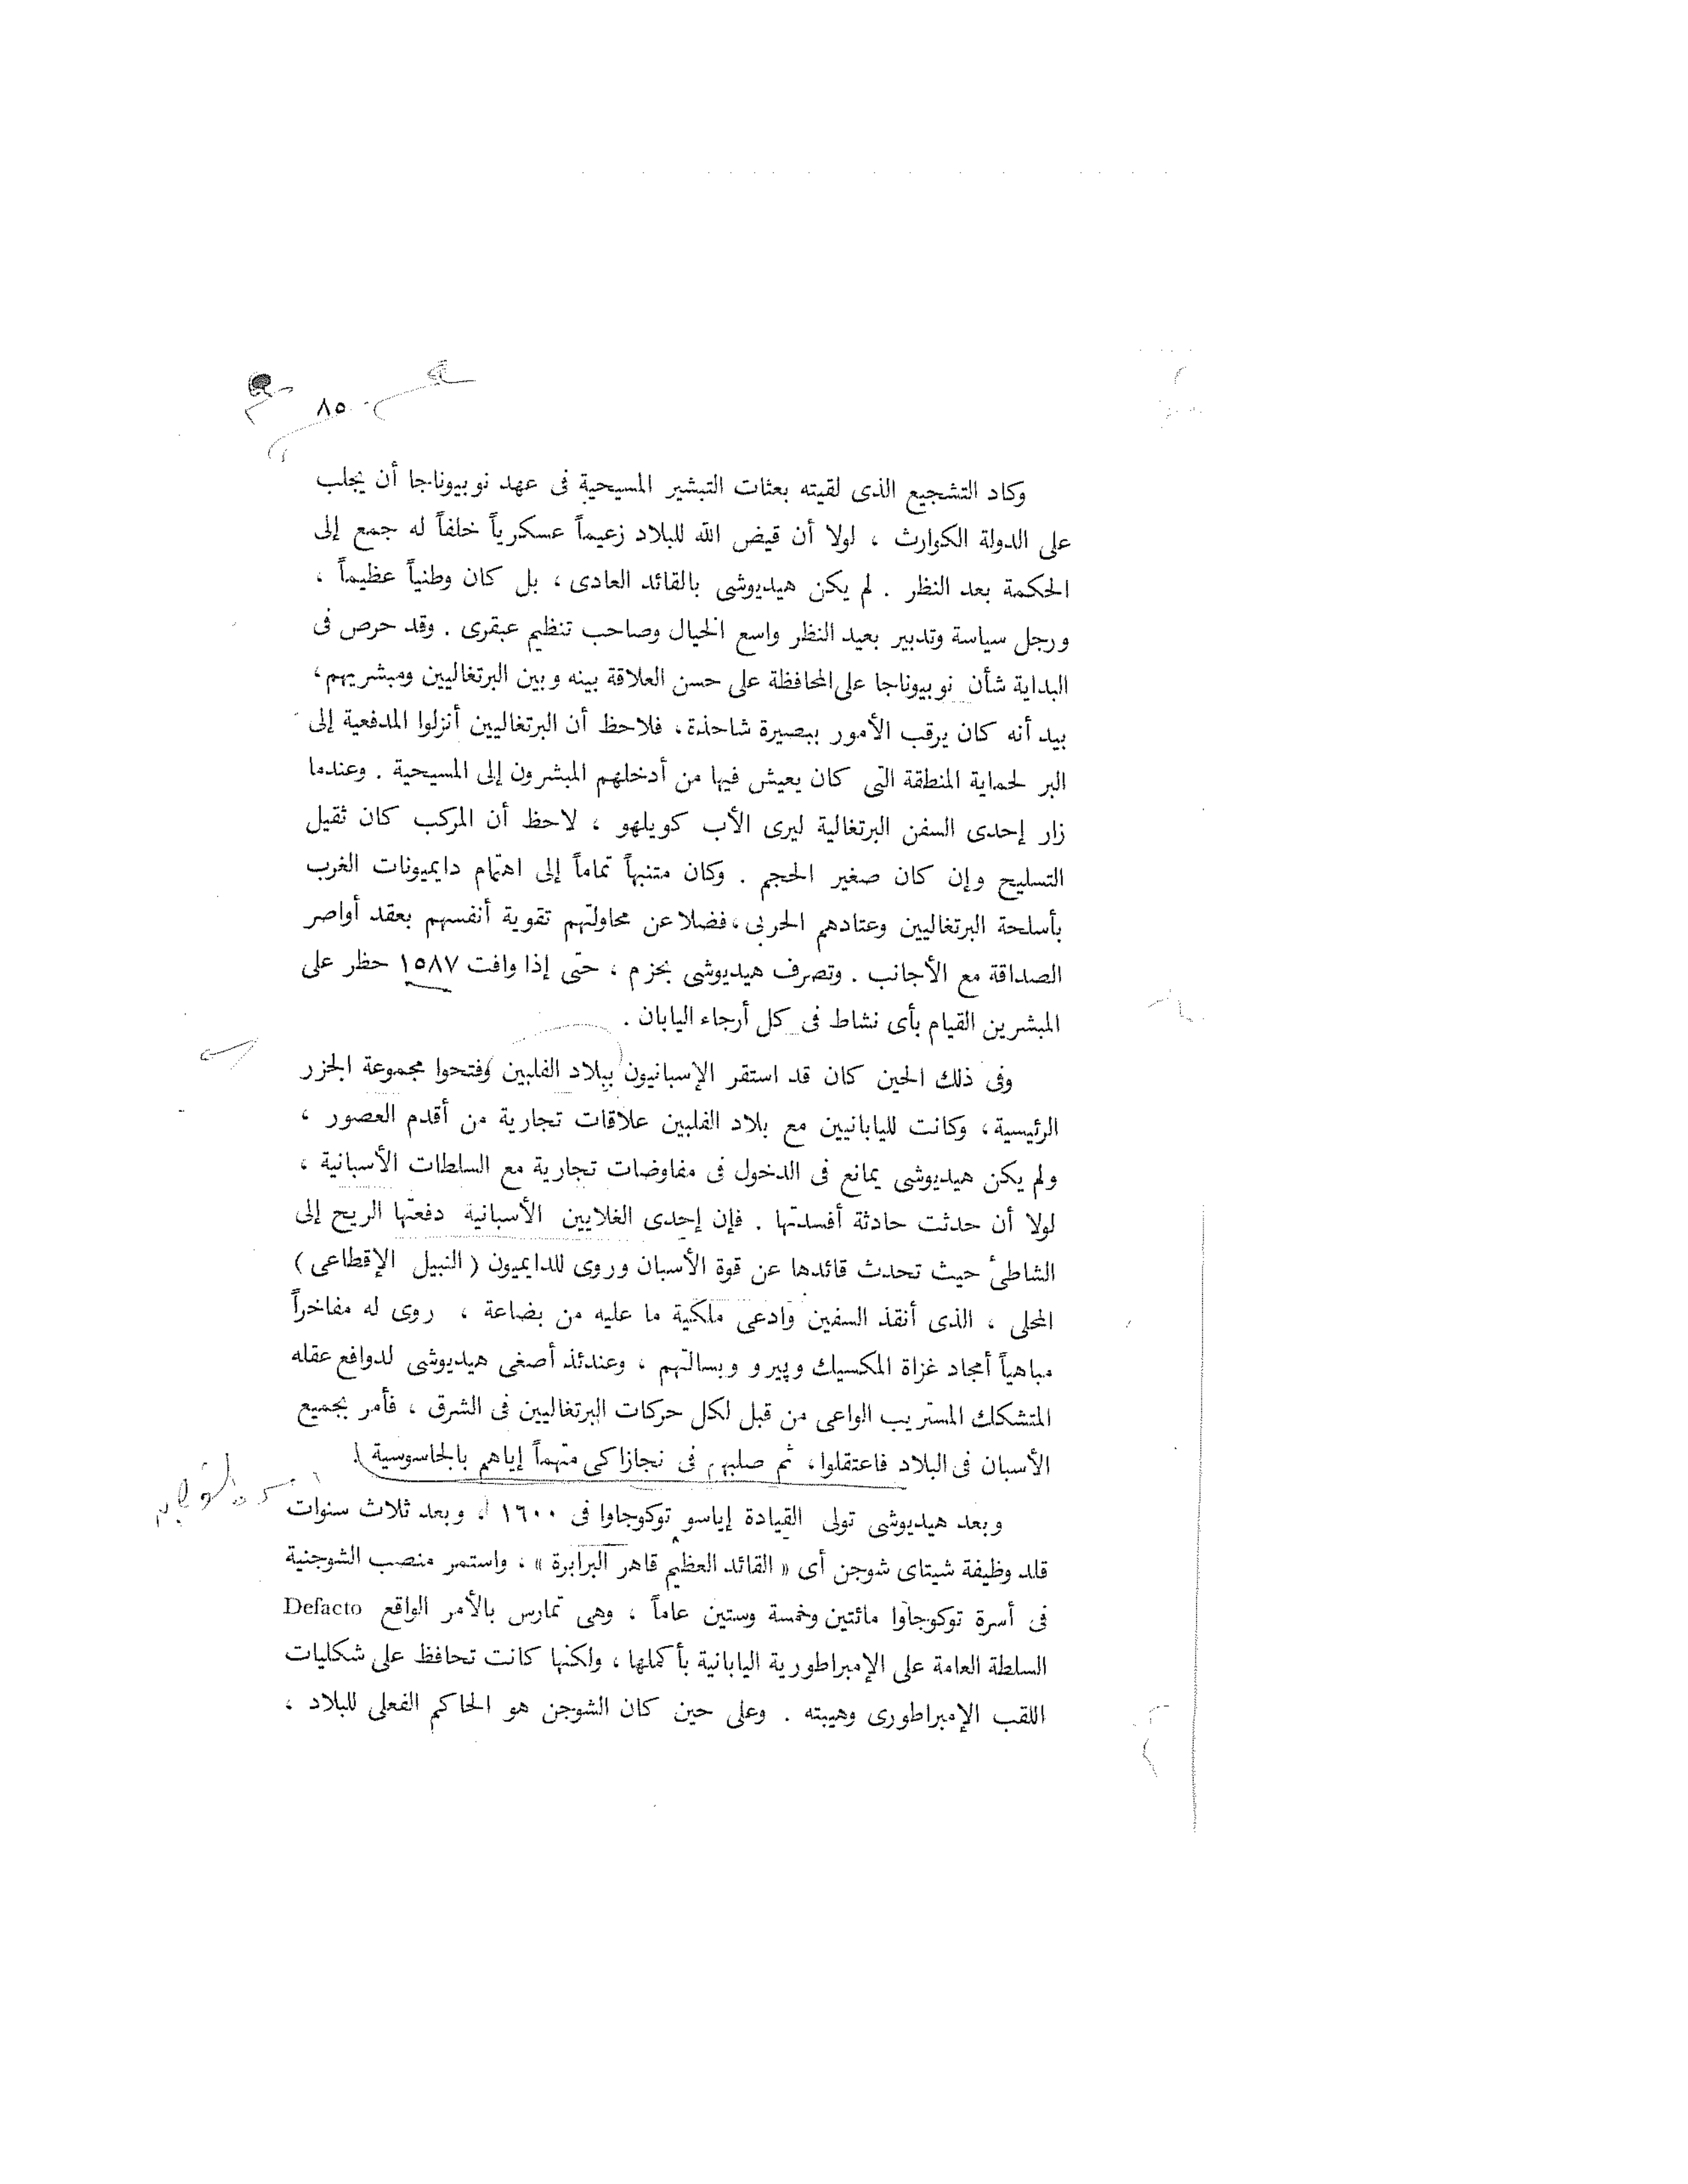 ٨٥
وكاد التشجيع الذى لقيته بعثات التبشير المسيحية فى عهد نوبيوناجا أن يجلب
على الدولة الكوارث ، لولا أن قيض الله للبلاد زعيماً عسكرياً خلفاً له جمع إلى
الحكمة بعد النظر . لم يكن هيديوشى بالقائد العادى ، بل كان وطنياً عظيماً ،
ورجل سياسة وتدبير بعيد النظر واسع الخيال وصاحب تنظيم عبقرى . وقد حرص فى
البداية شأن نوبيوناجا على المحافظة على حسن العلاقة بينه وبين البرتغاليين ومبشريهم ،
بيد أنه كان يرقب الأمور ببصيرة شاحذة ، فلاحظ أن البرتغاليين أنزلوا المدفعية إلى
البر لحماية المنطقة التى كان يعيش فيها من أدخلهم المبشرون إلى المسيحية . وعندما
زار إحدى السفن البرتغالية ليرى الأب كويلهو ، لاحظ أن المركب كان ثقيل
التسليح وإن كان صغير الحجم . وكان متنبهاً تماماً إلى اهتمام دايميونات الغرب
بأسلحة البرتغاليين وعتادهم الحربى ، فضلا عن محاولتهم تقوية أنفسهم بعقد أواصر
الصداقة مع الأجانب . وتصرف هيديوشى بحزم ، حتى إذا وافت ١٥٨٧ حظر على
المبشرين القيام بأى نشاط فى كل أرجاء اليابان .
وفى ذلك الحين كان قد استقر الإسبانيون ببلاد الفلبين وفتحوا مجموعة الجزر
الرئيسية ، وكانت لليابانيين مع بلاد الفلبين علاقات تجارية من أقدم العصور ،
ولم يكن هيديوشى يمانع فى الدخول فى مفاوضات تجارية مع السلطات الأسبانية ،
لولا أن حدثت حادثة أفسدتها . فإن إحدى الغلايين الأسبانية دفعتها الريح إلى
الشاطئ حيث تحدث قائدها عن قوة الأسبان وروى للدايميون ( النبيل الإقطاعى )
المحلى ، الذى أنقذ السفين وادعى ملكية ما عليه من بضاعة ، روى له مفاخراً
مباهياً أمجاد غزاة المكسيك وپيرو وبسالتهم ، وعندئذ أصغى هيديوشى لدوافع عقله
المتشكك المستريب الواعى من قبل لكل حركات البرتغاليين فى الشرق ، فأمر بجميع
الأسبان فى البلاد فاعتقلوا ، ثم صلبهم فى نجازاكى متهماً إياهم بالجاسوسية .
وبعد هيديوشى تولى القيادة إياسو توكوجاوا فى ١٦٠٠ ، وبعد ثلاث سنوات
قلد وظيفة شيتاى شوجن أى « القائد العظيم قاهر البرابرة » ، واستمر منصب الشوجنية
فى أسرة توكوجاوا مائتين وخمسة وستين عاماً ، وهى تمارس بالأمر الواقع Defacto
السلطة العامة على الإمبراطورية اليابانية بأكملها ، ولكنها كانت تحافظ على شكليات
اللقب الإمبراطورى وهيبته . وعلى حين كان الشوجن هو الحاكم الفعلى للبلاد ،